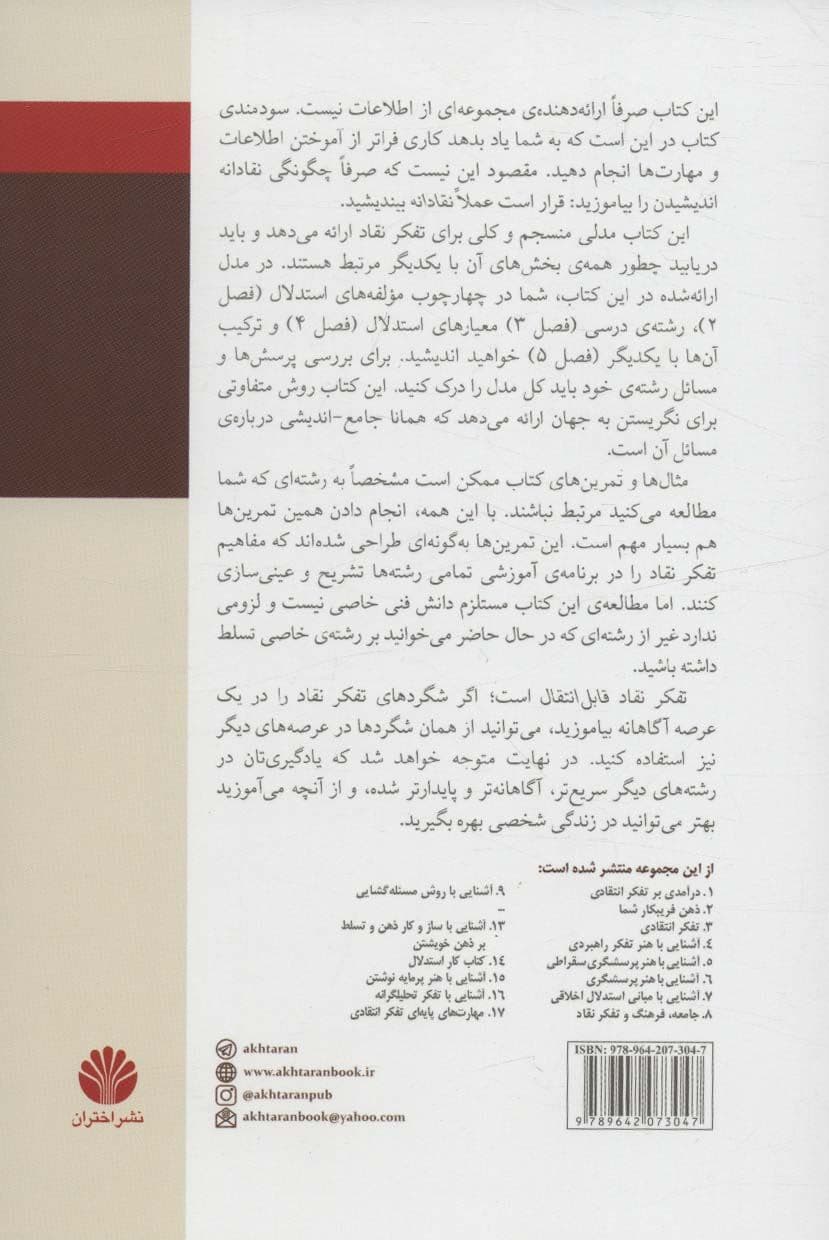 این کتاب صرفاً ارائه‌دهنده‌ی مجموعه‌ای از اطلاعات نیست. سودمندی
کتاب در این است که به شما یاد بدهد کاری فراتر از آموختن اطلاعات
و مهارت‌ها انجام دهید. مقصود این نیست که صرفاً چگونگی نقادانه
اندیشیدن را بیاموزید: قرار است عملاً نقادانه بیندیشید.
این کتاب مدلی منسجم و کلی برای تفکر نقاد ارائه می‌دهد و باید
دریابید چطور همه‌ی بخش‌های آن با یکدیگر مرتبط هستند. در مدل
ارائه‌شده در این کتاب، شما در چهارچوب مؤلفه‌های استدلال (فصل
۲)، رشته‌ی درسی (فصل ۳) معیارهای استدلال (فصل ۴) و ترکیب
آن‌ها با یکدیگر (فصل ۵) خواهید اندیشید. برای بررسی پرسش‌ها و
مسائل رشته‌ی خود باید کل مدل را درک کنید. این کتاب روش متفاوتی
برای نگریستن به جهان ارائه می‌دهد که همانا جامع-اندیشی درباره‌ی
مسائل آن است.
مثال‌ها و تمرین‌های کتاب ممکن است مشخصاً به رشته‌ای که شما
مطالعه می‌کنید مرتبط نباشند. با این همه، انجام دادن همین تمرین‌ها
هم بسیار مهم است. این تمرین‌ها به‌گونه‌ای طراحی شده‌اند که مفاهیم
تفکر نقاد را در برنامه‌ی آموزشی تمامی رشته‌ها تشریح و عینی‌سازی
کنند. اما مطالعه‌ی این کتاب مستلزم دانش فنی خاصی نیست و لزومی
ندارد غیر از رشته‌ای که در حال حاضر می‌خوانید بر رشته‌ی خاصی تسلط
داشته باشید.
تفکر نقاد قابل‌انتقال است؛ اگر شگردهای تفکر نقاد را در یک
عرصه آگاهانه بیاموزید، می‌توانید از همان شگردها در عرصه‌های دیگر
نیز استفاده کنید. در نهایت متوجه خواهد شد که یادگیری‌تان در
رشته‌های دیگر سریع‌تر، آگاهانه‌تر و پایدارتر شده، و از آنچه می‌آموزید
بهتر می‌توانید در زندگی شخصی بهره بگیرید.
از این مجموعه منتشر شده است:
۱. درآمدی بر تفکر انتقادی
۲. ذهن فریبکار شما
۳. تفکر انتقادی
۴. آشنایی با هنر تفکر راهبردی
۵. آشنایی با هنر پرسشگری سقراطی
۶. آشنایی با هنر پرسشگری
۷. آشنایی با مبانی استدلال اخلاقی
۸. جامعه، فرهنگ و تفکر نقاد
۹. آشنایی با روش مسئله‌گشایی
–
۱۳. آشنایی با ساز و کار ذهن و تسلط
بر ذهن خویشتن
۱۴. کتاب کار استدلال
۱۵. آشنایی با هنر پرمایه نوشتن
۱۶. آشنایی با تفکر تحلیلگرانه
۱۷. مهارت‌های پایه‌ای تفکر انتقادی
ISBN: 978-964-207-304-7
9 789642 073047
akhtaran
www.akhtaranbook.ir
@akhtaranpub
akhtaranbook@yahoo.com
نشر اختران